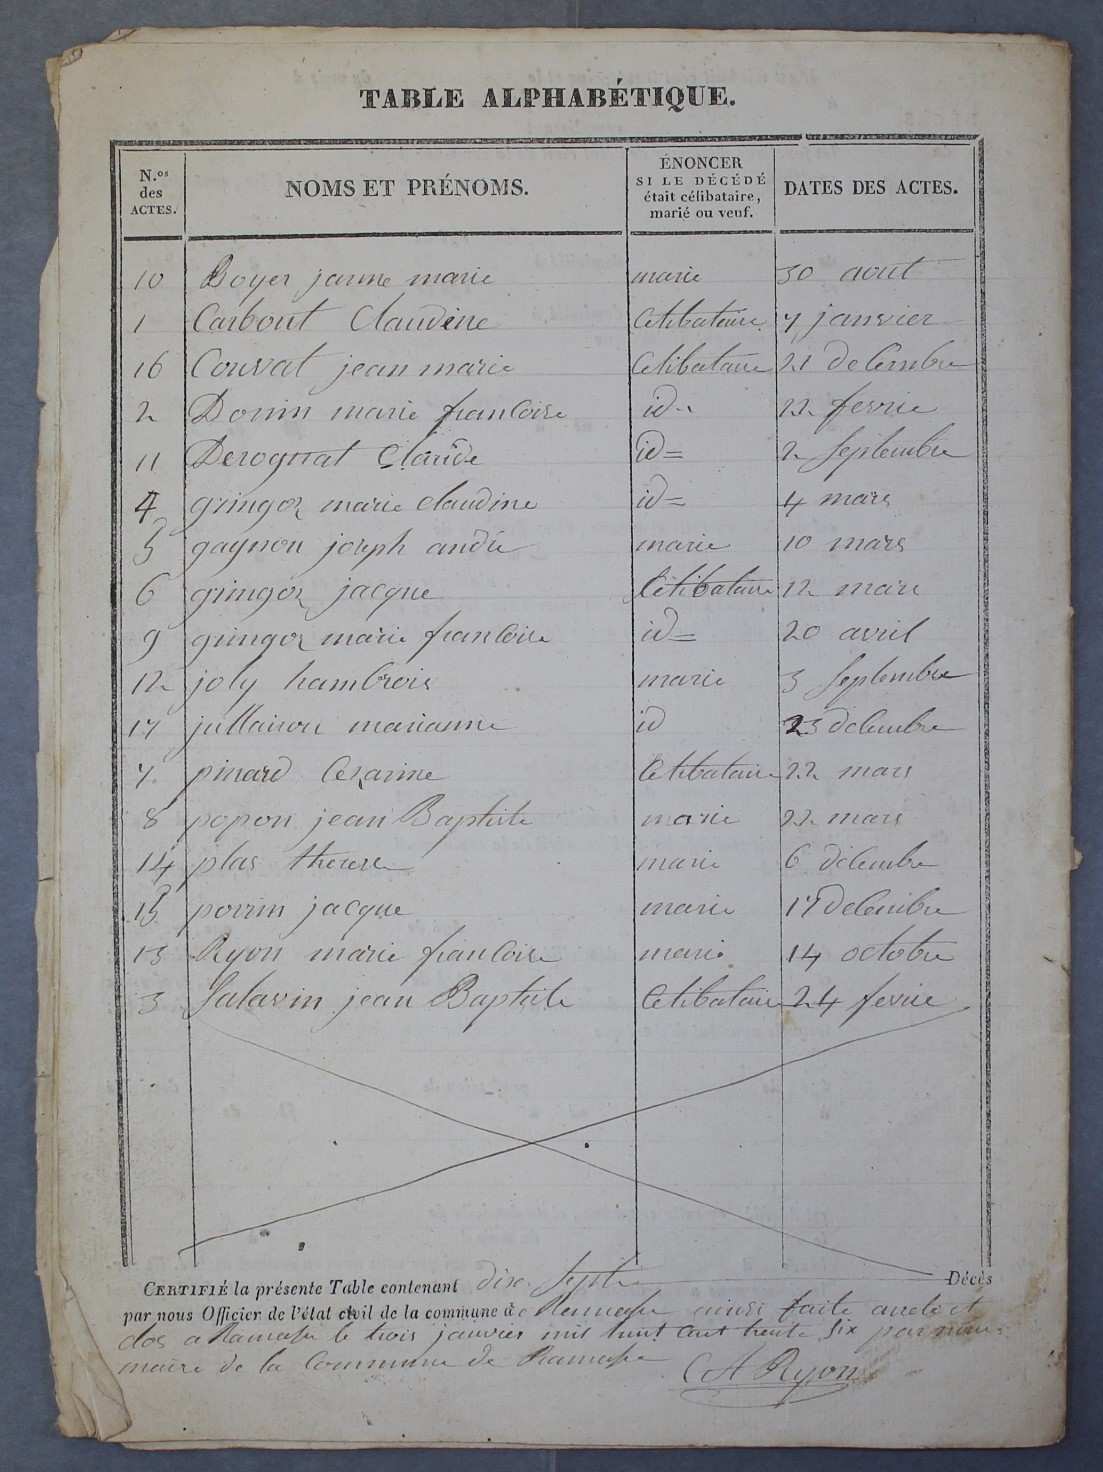 TABLE ALPHABÉTIQUE.
N.os des ACTES. NOMS ET PRÉNOMS. ÉNONCER SI LE DÉCÉDÉ était célibataire, marié ou veuf. DATES DES ACTES.
10 Boyer janne marie marie 30 aout
1 Carbout Claudine Celibataire 7 janvier
16 Couvat jean marie Celibataire 21 decembre
2 Donin marie francoise id 22 fevrie
11 Derognat Claude id= 2 Septembre
4 gringoz marie claudine id= 4 mars
5 gagnon joseph andré marie 10 mars
6 gringoz jacque Célibataire 12 mars
9 gringoz marie francoise id= 20 avril
12 joly hambrois marie 3 Septembre
17 marianne id 23 decembre
7. pinard Cezarine Celibataire 22 mars
8 popon jean Baptiste marie 22 mars
14 plas therese marie 6 décembre
15 porrin jacque marie 17 decembre
13 Ryon marie francoise marie 14 octobre
3 Salavin jean Baptiste Celibataire 24 fevrie
CERTIFIÉ la présente Table contenant dix Sept Décès
par nous Officier de l'état civil de la commune de Ramasse ainsi faite
clos a Ramasse le trois janvier mil huit cent trente Six par nous
maire de la Commune de Ramasse
CA Ryon